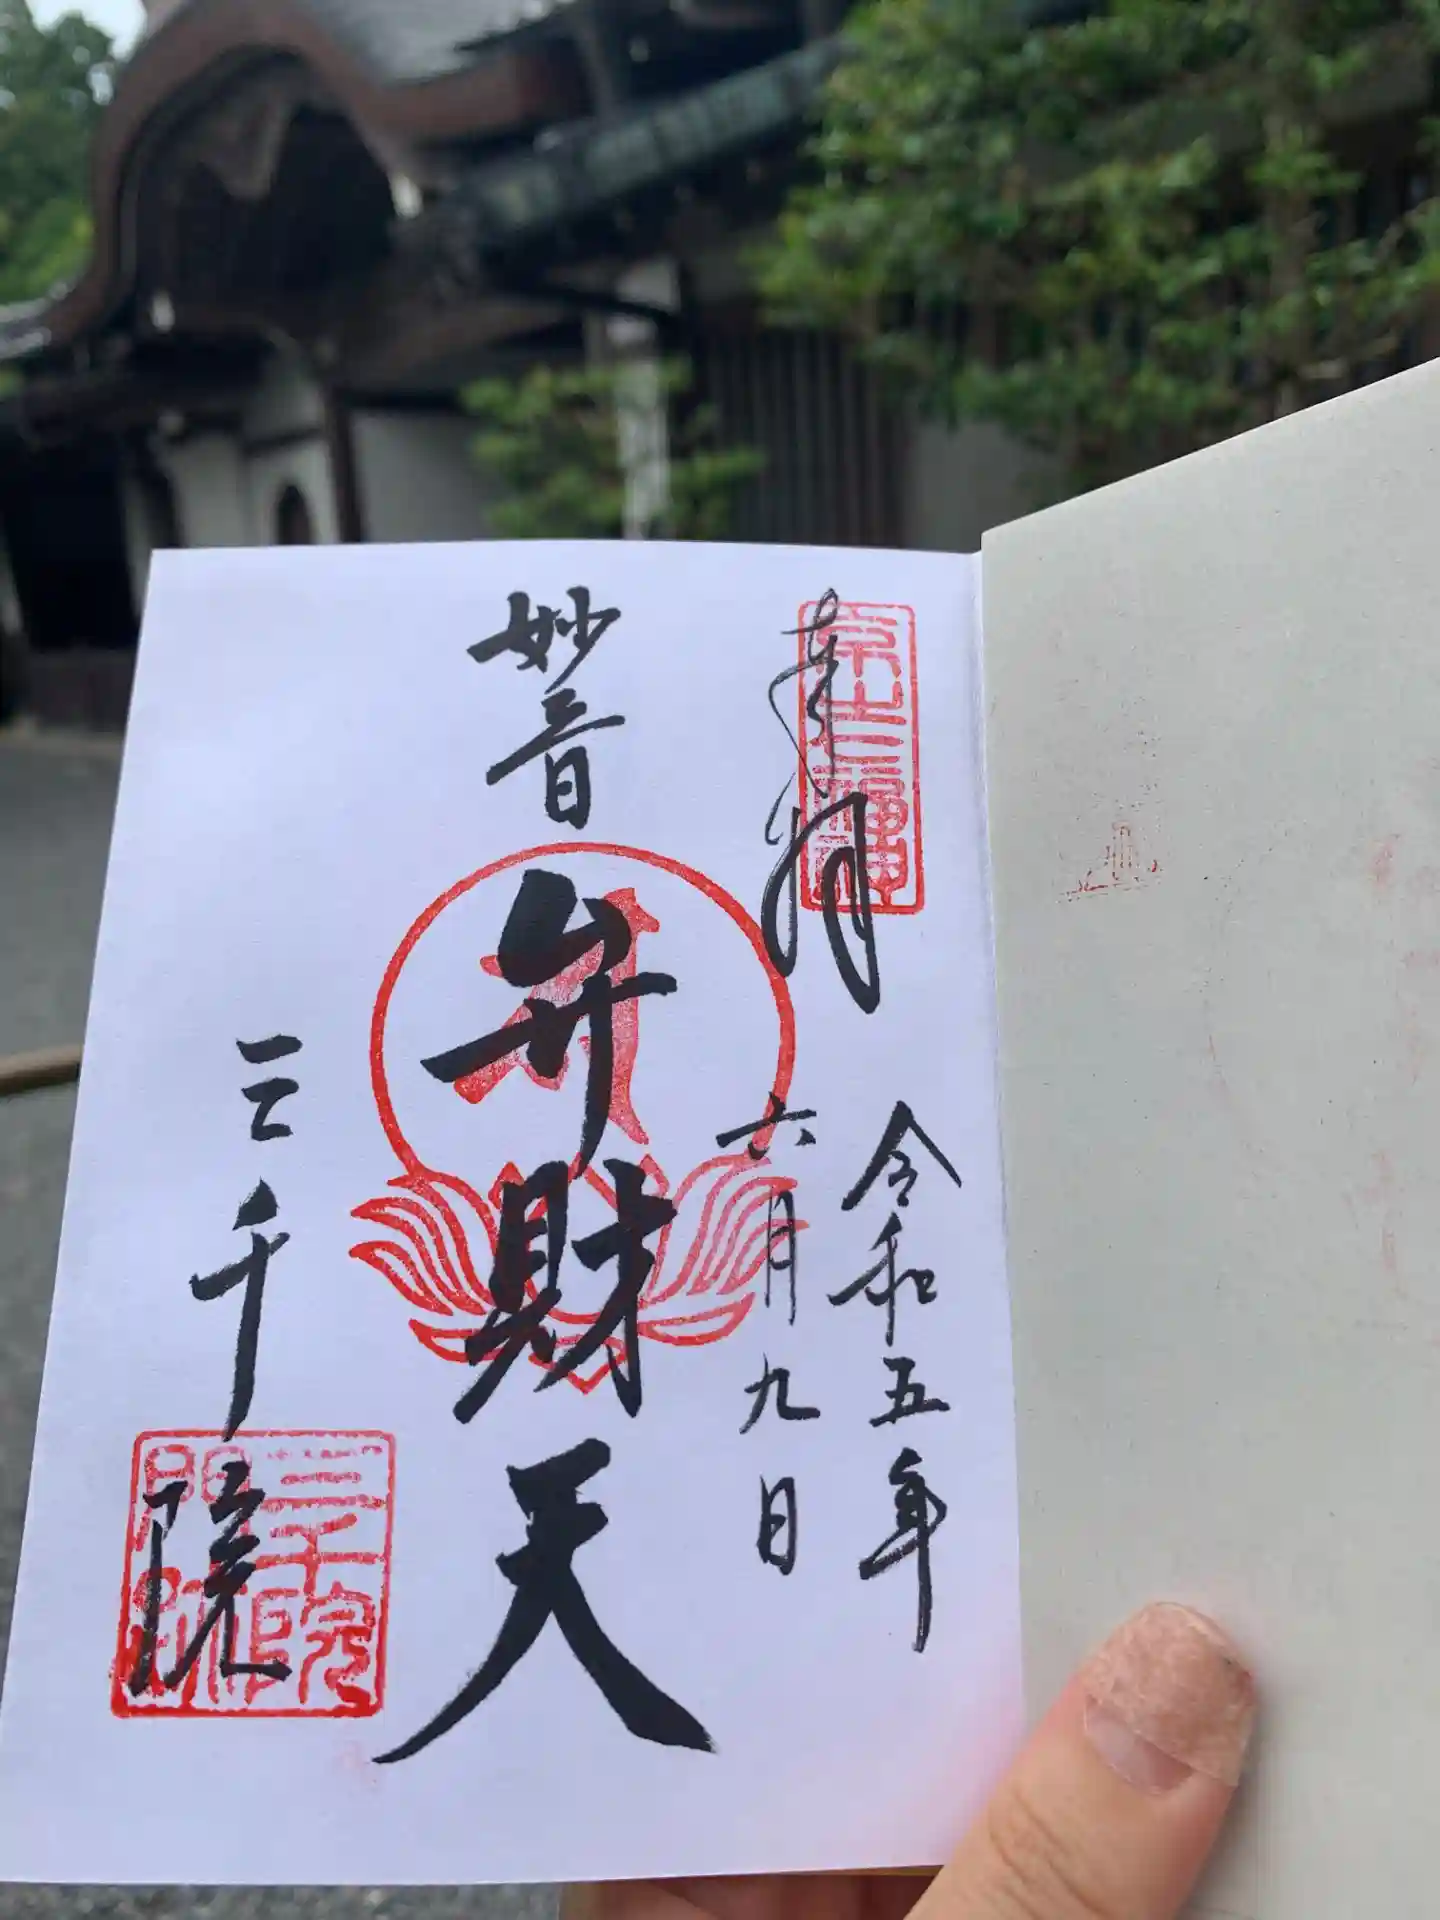 奉拝
令和五年
六月九日
妙音
弁財天
三千院
三千院